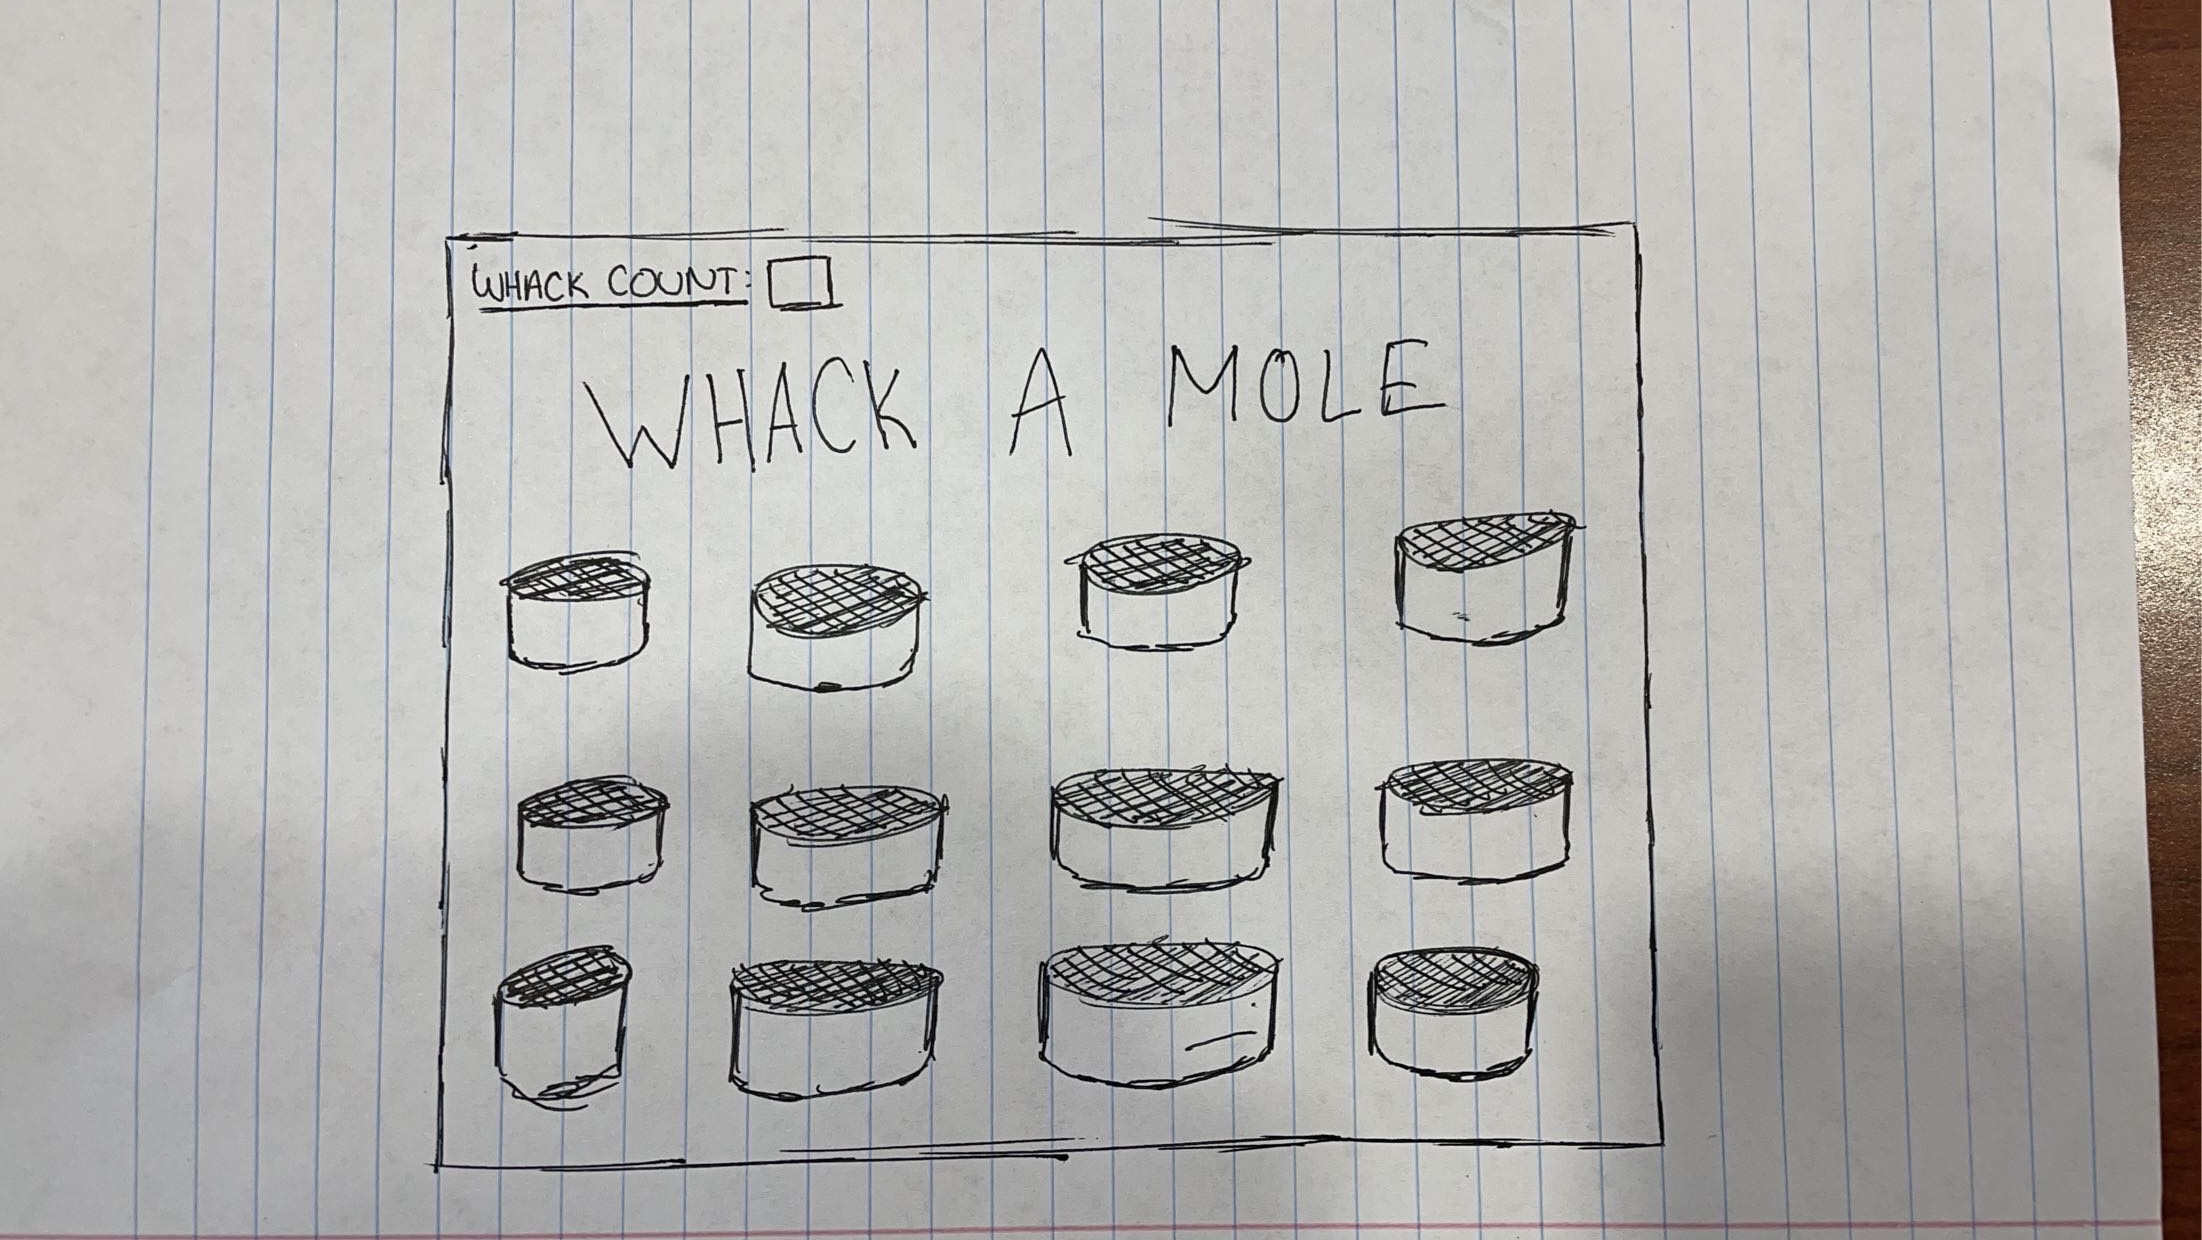 WHACK COUNT:
WHACK A MOLE